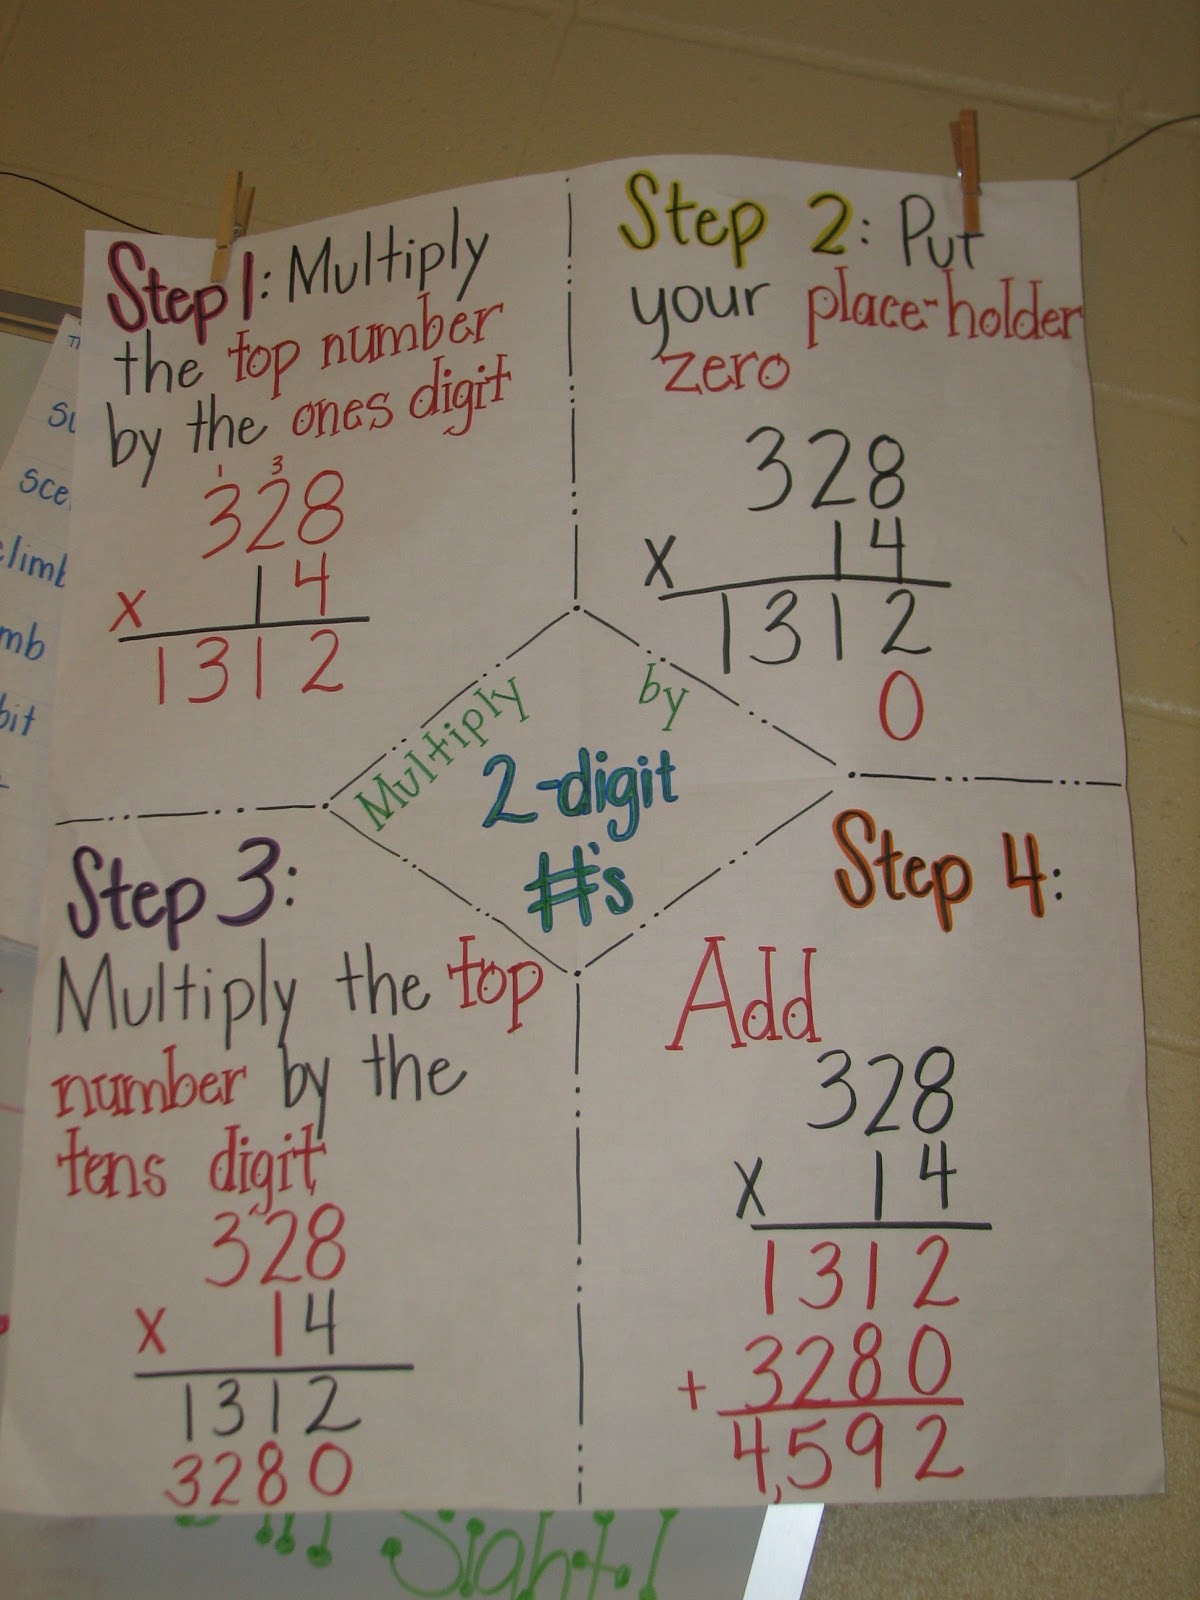 Step 1: Multiply
the top number
by the ones digit
1 3
328
x 14
1312
Step 2: Put
your place-holder
zero
328
x 14
1312
0
Multiply by
2-digit
#'s
Step 3:
Multiply the top
number by the
tens digit
328
x 14
1312
3280
Step 4:
Add
328
x 14
1312
+ 3280
4,592